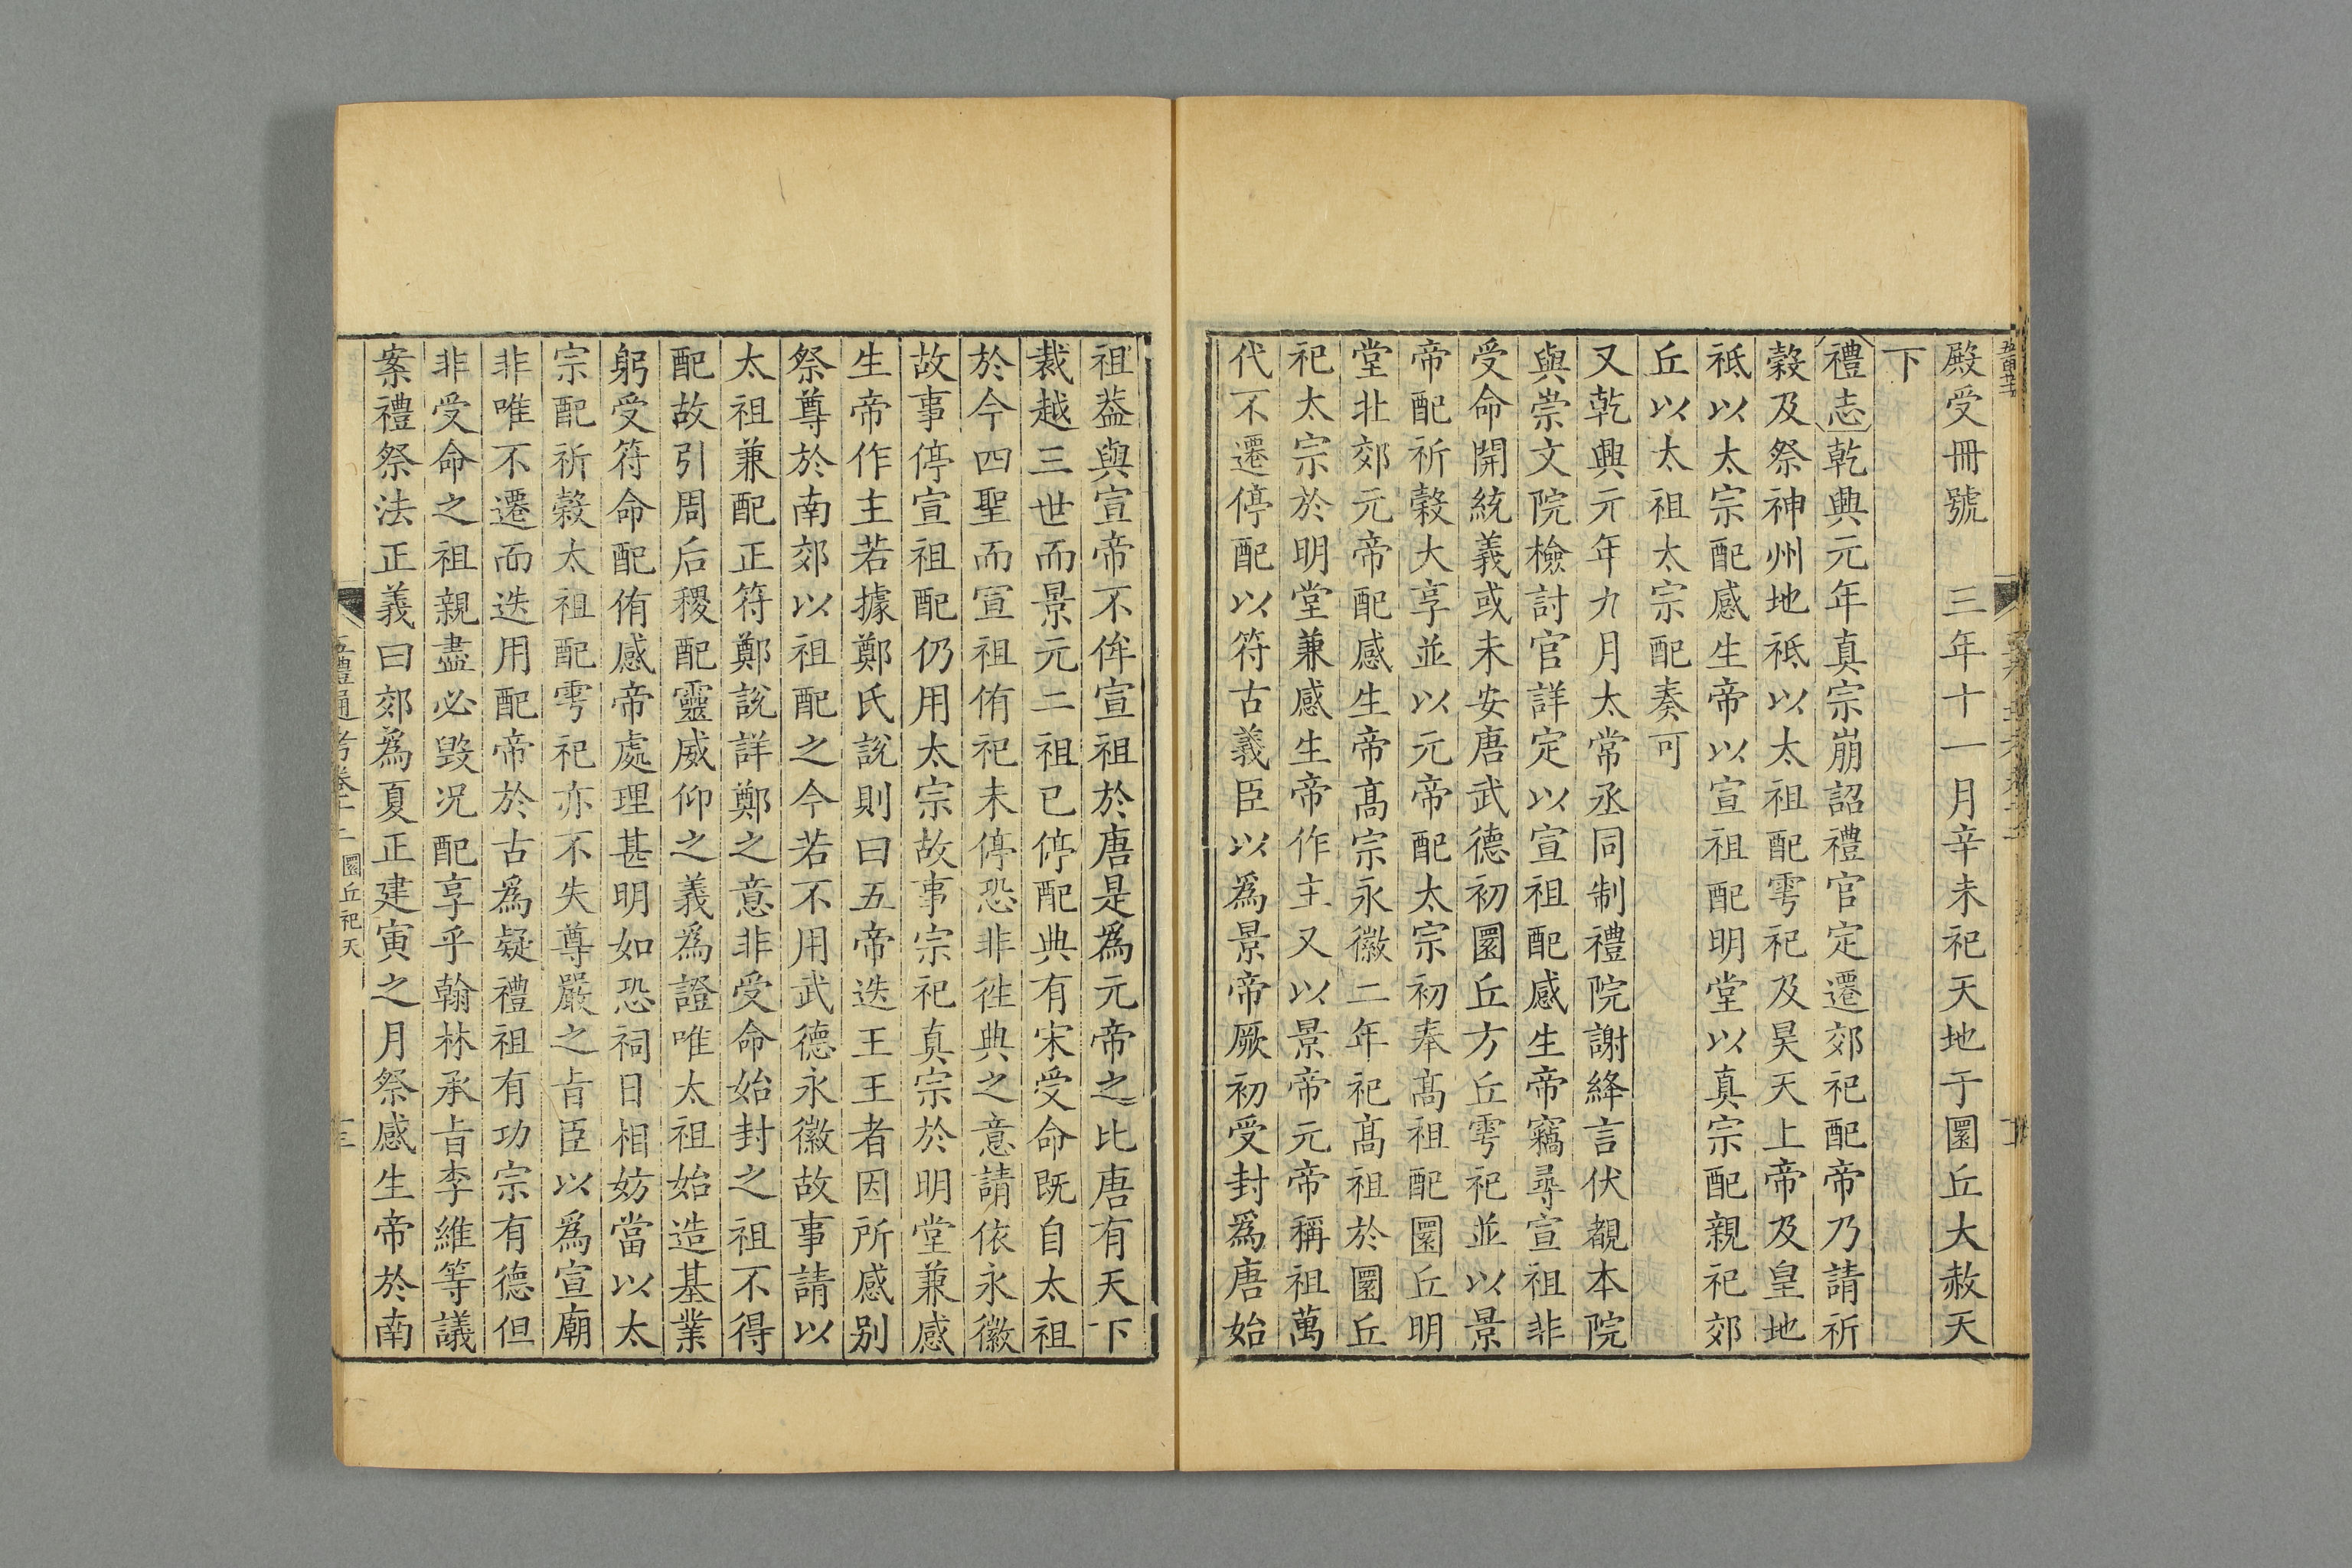 殿受冊號　三年十一月辛未祀天地于圜丘大赦天
下
禮志乾興元年真宗崩詔禮官定遷郊祀配帝乃請祈
穀及祭神州地祗以太祖配雩祀及昊天上帝及皇地
祗以太宗配感生帝以宣祖配明堂以真宗配親祀郊
丘以太祖太宗配奏可
又乾興元年九月太常丞同制禮院謝絳言伏覩本院
與崇文院檢討官詳定以宣祖配感生帝竊尋宣祖非
受命開統義或未安唐武德初圜丘方丘雩祀並以景
帝配祈穀大享並以元帝配太宗初奉髙祖配圜丘明
堂北郊元帝配感生帝髙宗永徽二年祀髙祖於圜丘
祀太宗於明堂兼感生帝作主又以景帝元帝稱祖萬
代不遷停配以符古義臣以為景帝厥初受封為唐始
祖葢與宣帝不侔宣祖於唐是為元帝之比唐有天下
裁越三世而景元二祖已停配典有宋受命既自太祖
於今四聖而宣祖侑祀未停恐非徃典之意請依永徽
故事停宣祖配仍用太宗故事宗祀真宗於明堂兼感
生帝作主若據鄭氏說則曰五帝迭王王者因所感别
祭尊於南郊以祖配之今若不用武德永徽故事請以
太祖兼配正符鄭說詳鄭之意非受命始封之祖不得
配故引周后稷配靈威仰之義為證唯太祖始造基業
躬受符命配侑感帝處理甚明如恐祠日相妨當以太
宗配祈穀太祖配雩祀亦不失尊嚴之㫖臣以為宣廟
非唯不遷而迭用配帝於古為疑禮祖有功宗有德但
非受命之祖親盡必毀况配享乎翰林承㫖李維等議
案禮祭法正義曰郊為夏正建寅之月祭感生帝於南
五禮通考卷十二　圜丘祀天